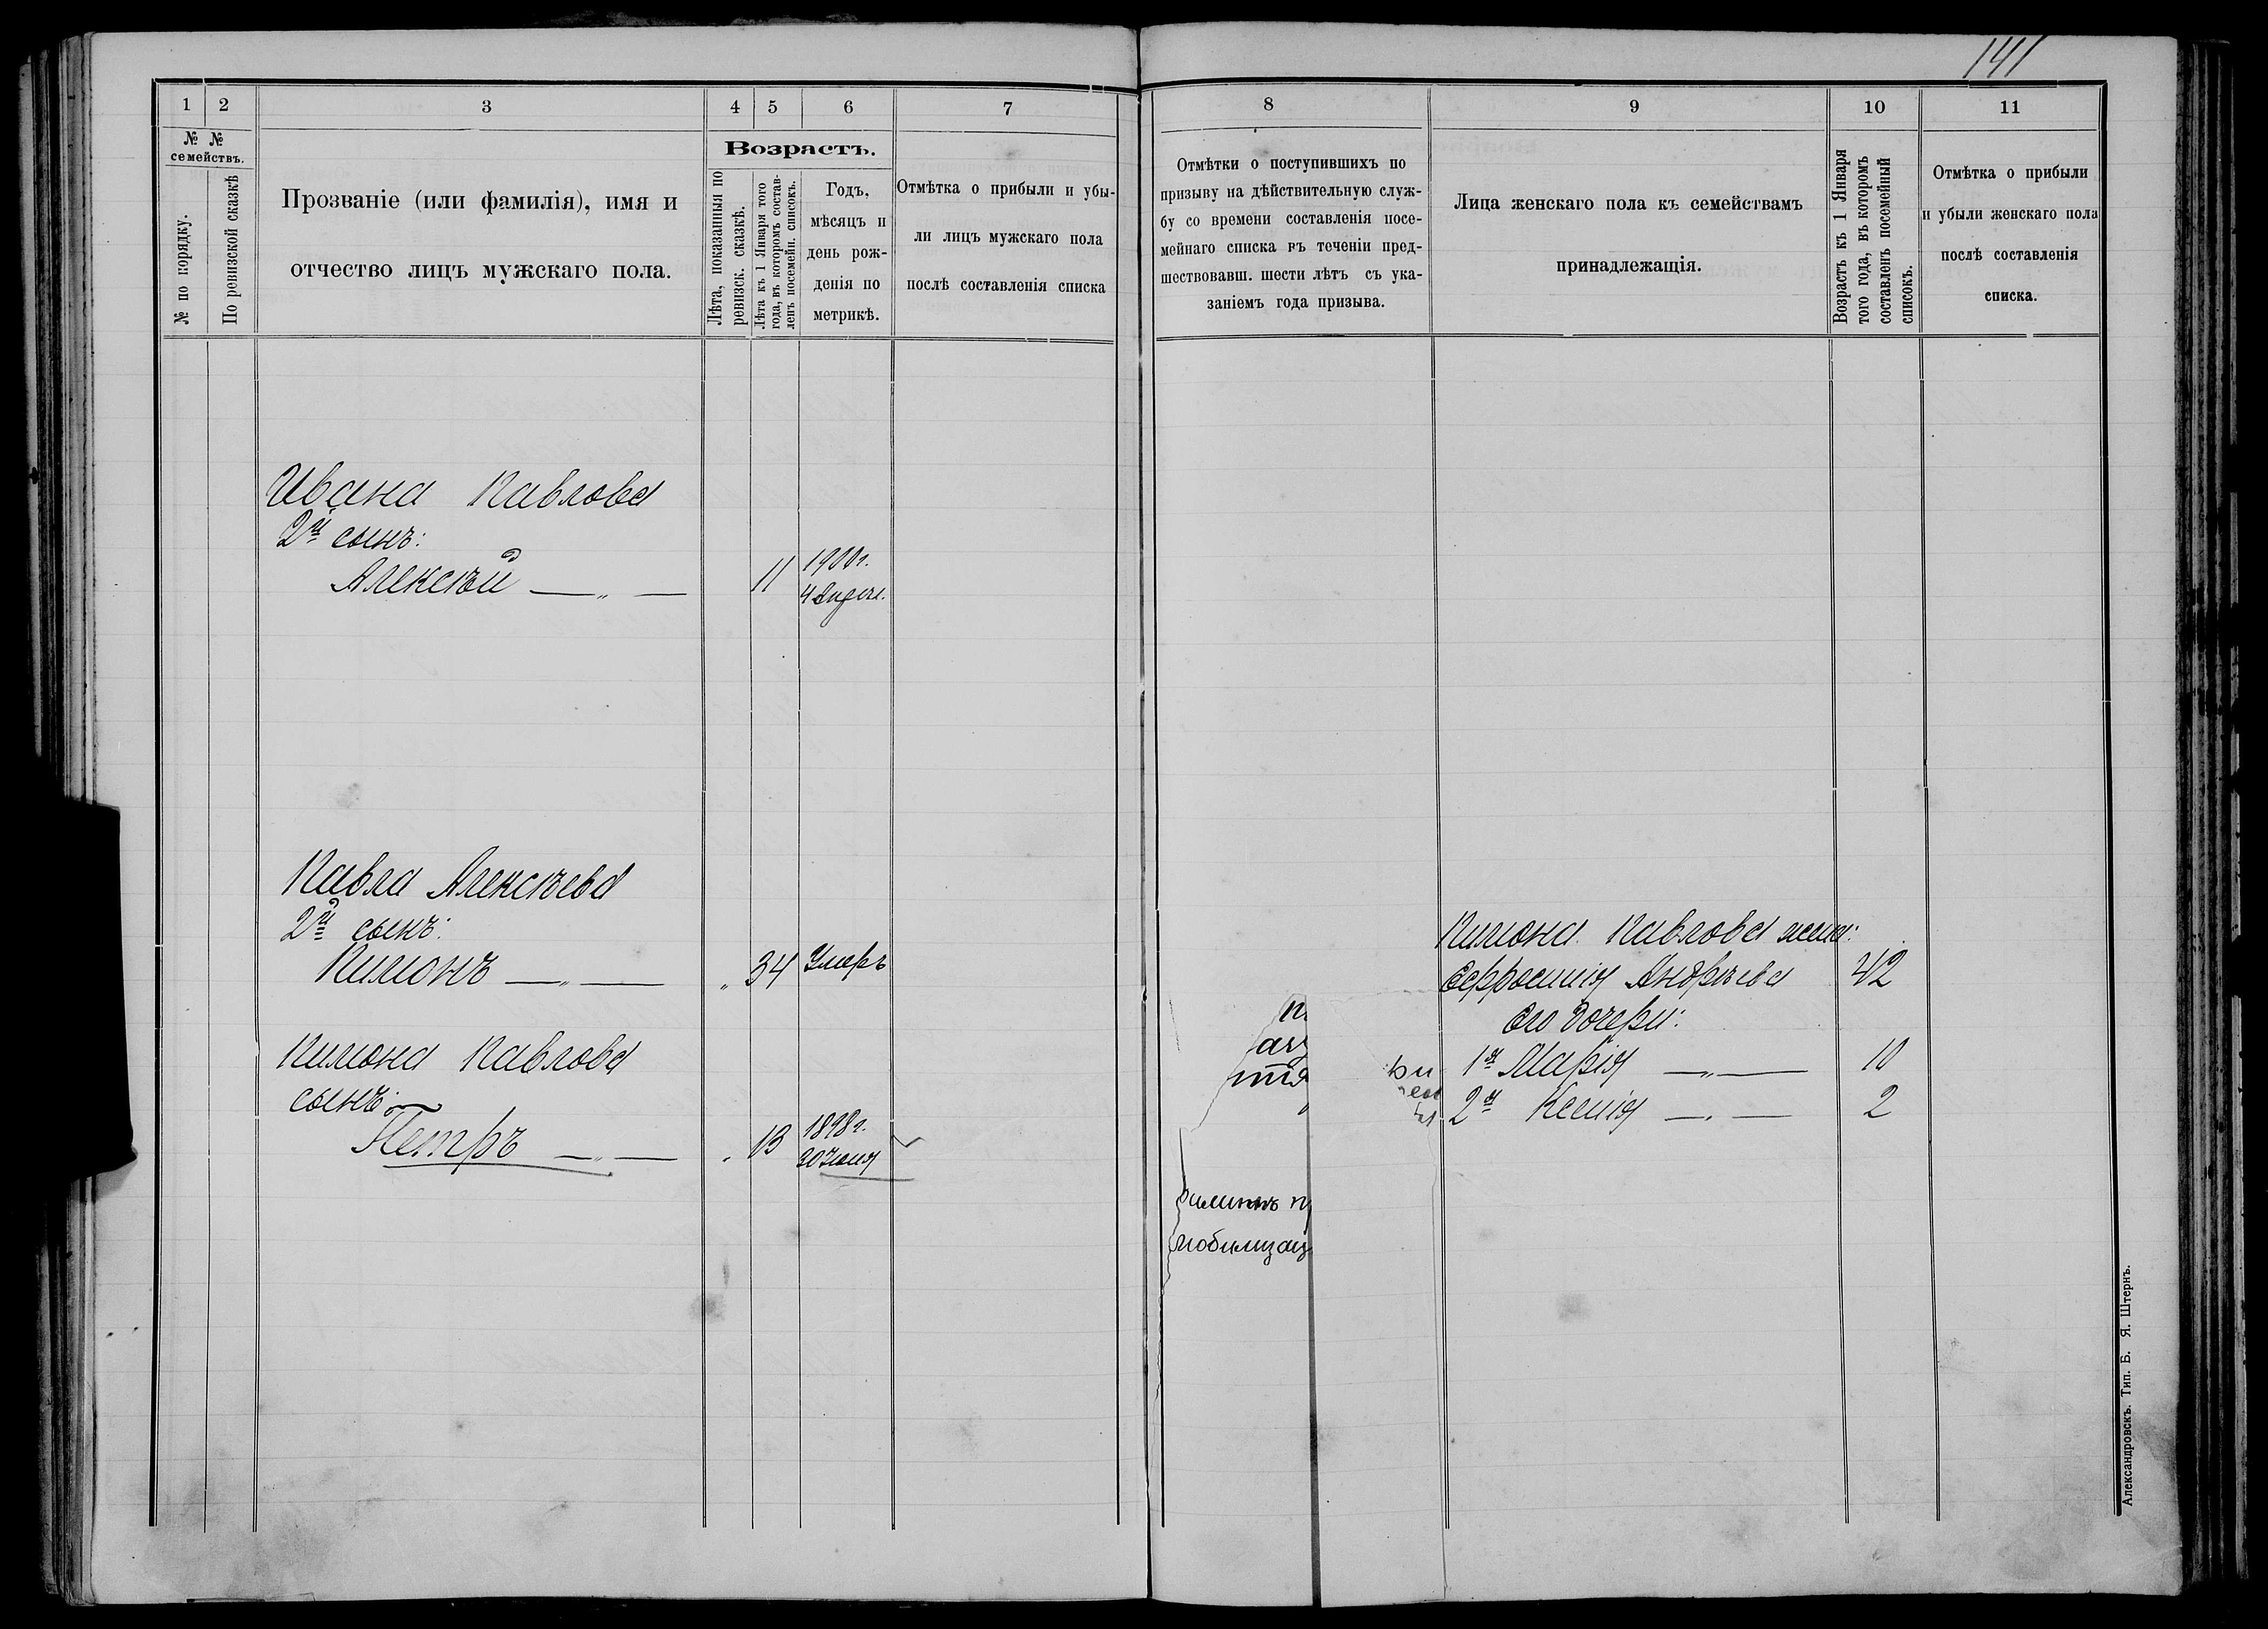 141
1 2 3 4 5 6 7
№ №
семействъ.
№ по порядку.
По ревизской сказкѣ
Прозваніе (или фамилія), имя и
отчество лицъ мужскаго пола.
Возрастъ.
Лѣта, показанныя по
ревизск. сказкѣ.
Лѣта къ 1 Января того
года, въ которомъ состав-
ленъ посемейн. списокъ.
Годъ,
мѣсяцъ и
день рож-
денія по
метрикѣ.
Отмѣтка о прибыли и убы-
ли лицъ мужскаго пола
послѣ составленія списка
Ивана Павлова
2й сынъ:
Алексѣй — „ — 11 1900г.
4
Павла Алексѣева
2й сынъ:
Пимонъ — „ — „ 34 Умеръ
Пимона Павлова
сынъ:
Петръ — „ — „ 13 1898г.
30 Іюня
8 9 10 11
Отмѣтки о поступившихъ по
призыву на дѣйствительную служ-
бу со времени составленія посе-
мейнаго списка въ теченіи пред-
шествовавш. шести лѣтъ съ ука-
заніемъ года призыва.
Лица женскаго пола къ семействамъ
принадлежащія.
Возрастъ къ 1 Января
того года, въ которомъ
составленъ посемейный
списокъ.
Отмѣтка о прибыли
и убыли женскаго пола
послѣ составленія
списка.
Пимона Павлова жена:
Ефросинія Андрѣева 42
Его дочери:
1я Марія — „ — 10
2я Ксенія — „ — 2
мобилизац
Александровскъ. Тип. Б. Я. Штернъ.